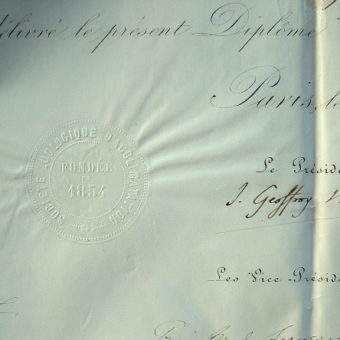 délivré le présent Diplôme
Paris, le
SOCIÉTÉ ZOOLOGIQUE D'ACCLIMATATION
FONDÉE
1854
Le Préside
I. Geoffroy
Les Vice-Préside